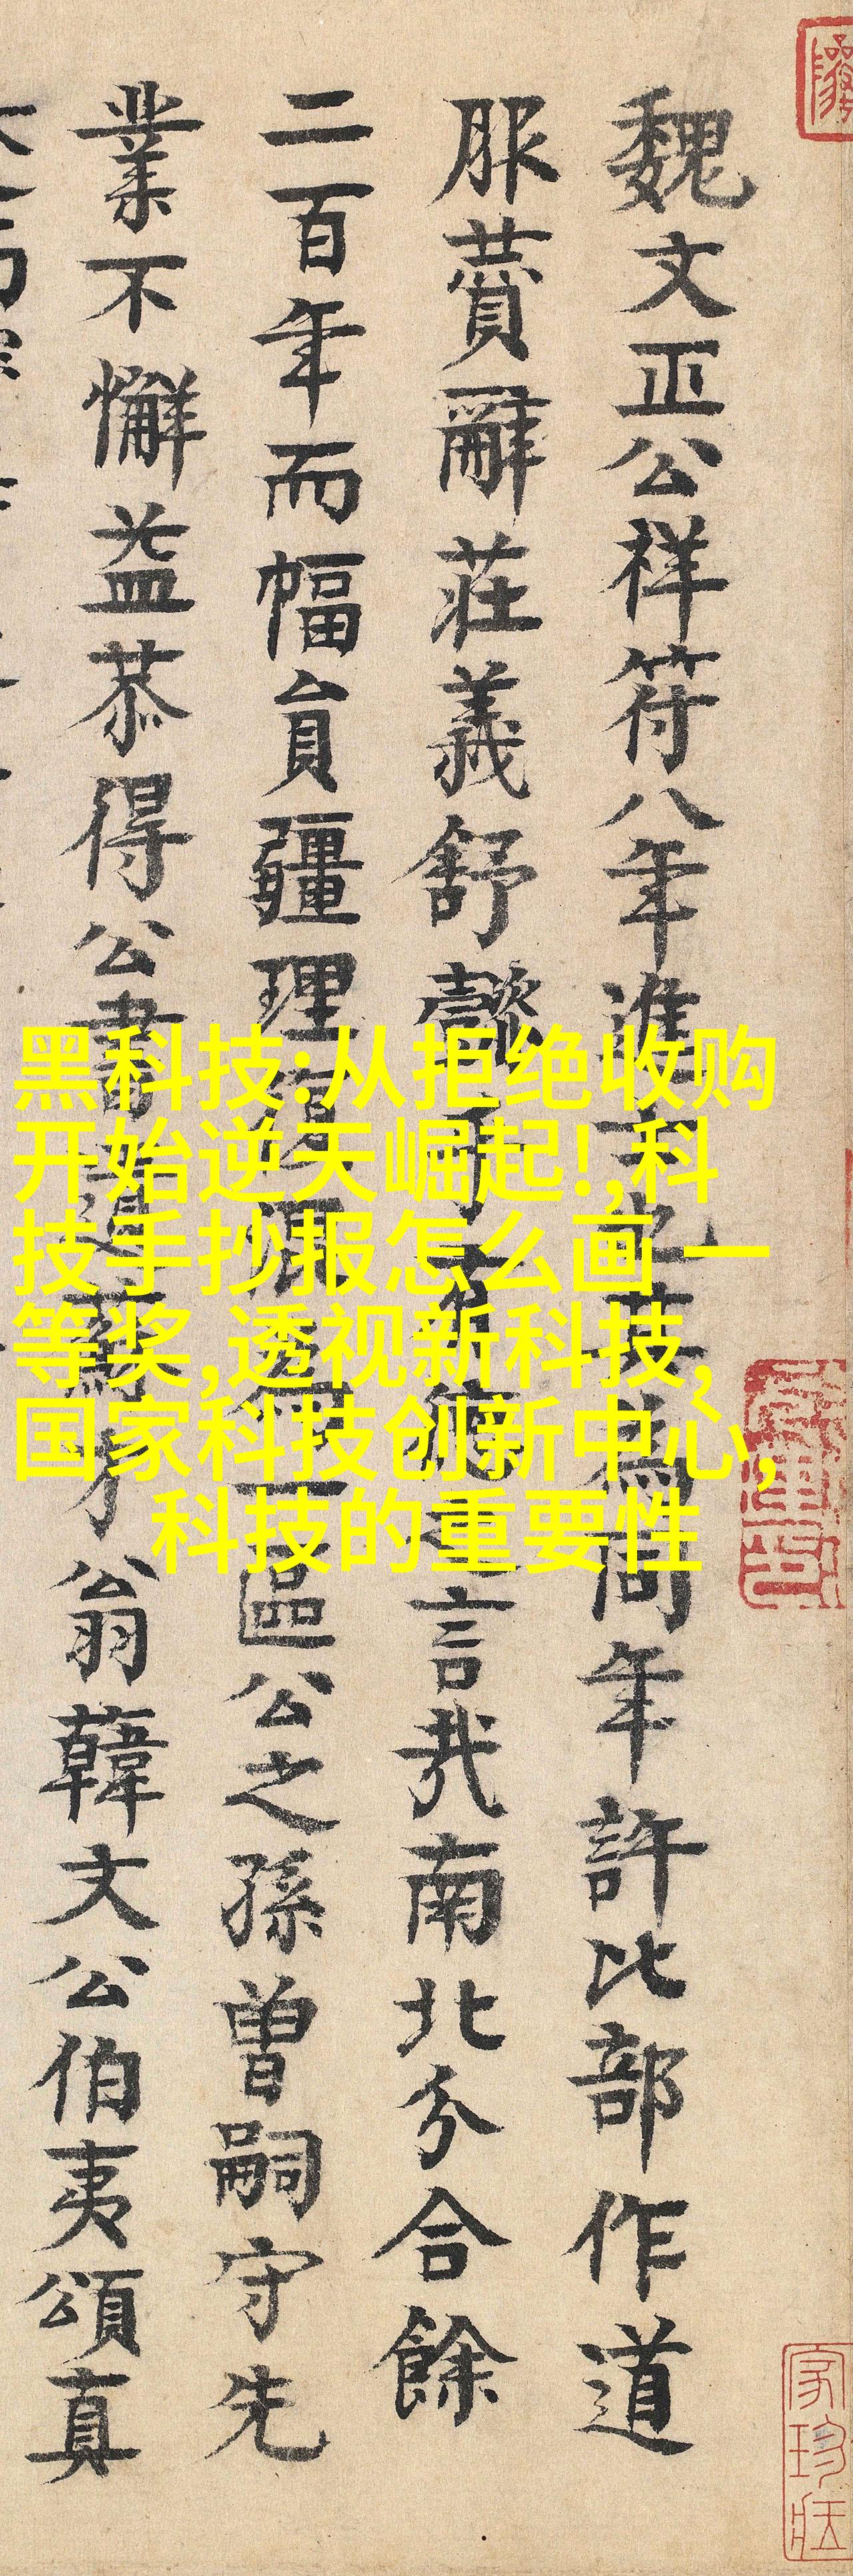 魏文正公祥符八年進士也其為同年許比部作道
服贊辭莊義舒懿乎有德之言哉南北分合餘
二百年而幅員疆理復一區公之孫曾嗣守先
業不懈益恭得公書遺蘇才翁韓文公伯夷頌真
黑科技:从拒绝收购
开始逆天崛起!,科
技手抄报怎么画 一
等奖,透视新科技,
国家科技创新中心,
科技的重要性